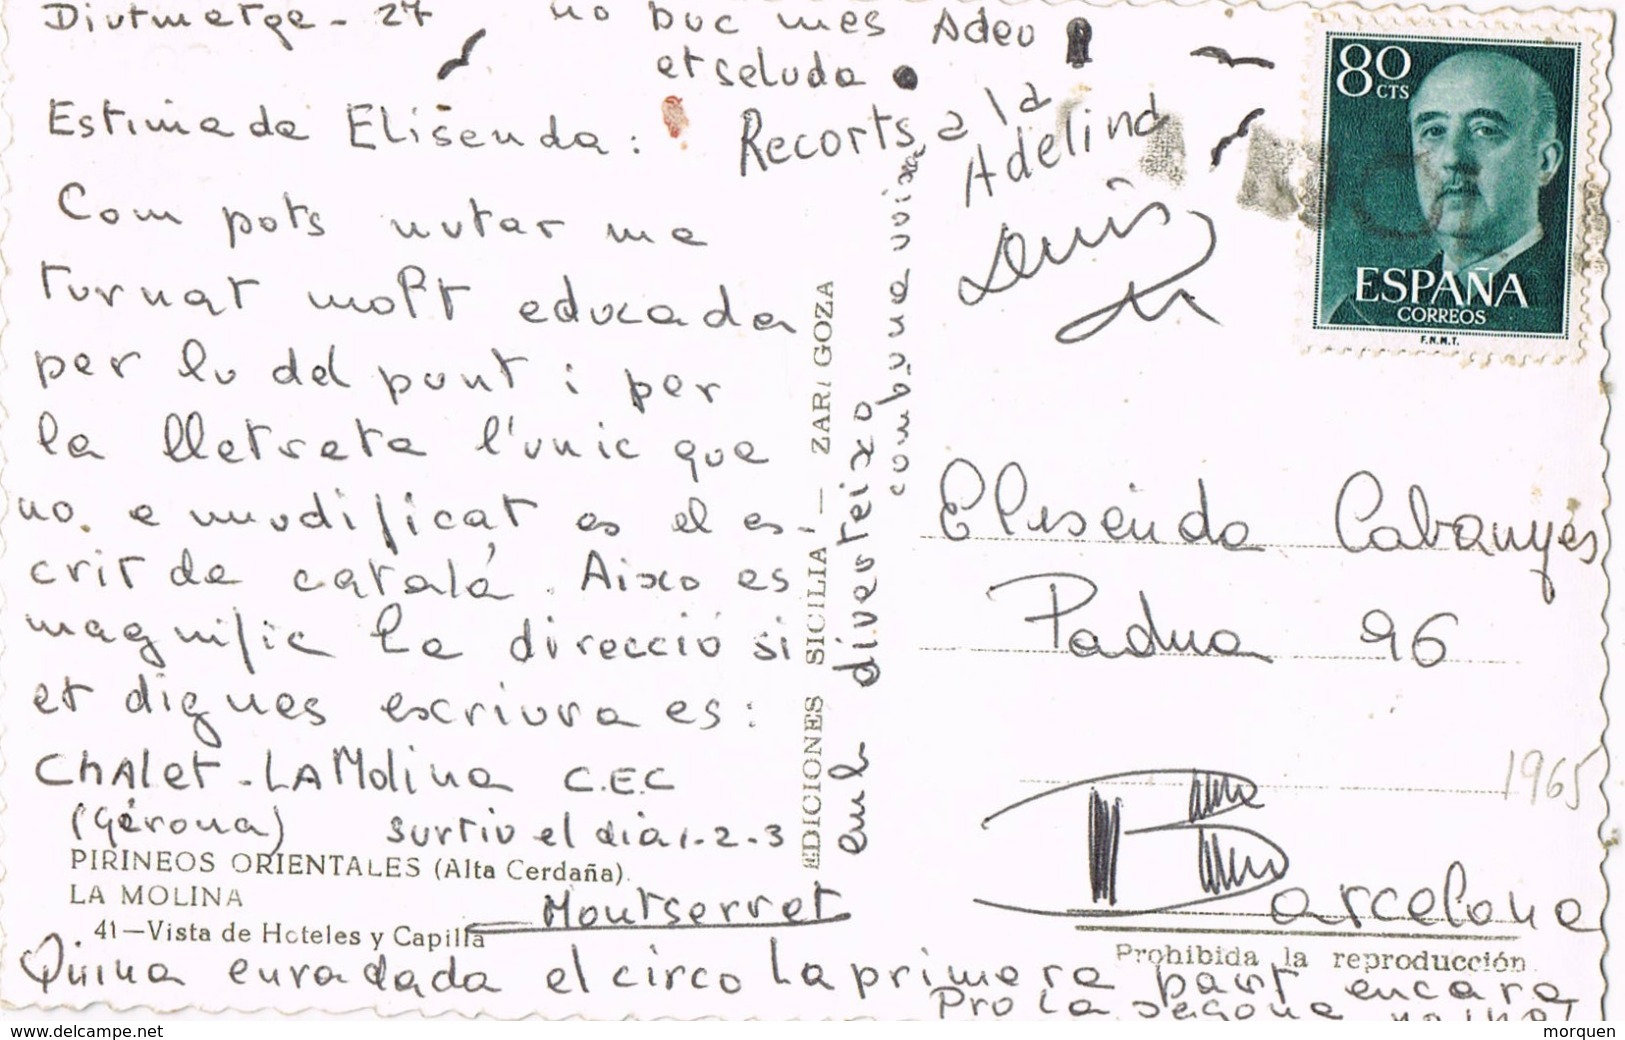 Diutmerge - 27
no buc mes Adeu
et seluda
Estimada Elisenda:
Recorts a la
Adelina
Com pots nutar me
turnat molt educada
per lo del punt i per
la lletreta l'unic que
no e mudificat es el es-
crit de catalá. Aixo es
magnific la direcció si
et digues escriura es:
CHAlet - LA Molina C.E.C
(Gérona) surtiu el dia 1-2-3
PIRINEOS ORIENTALES (Alta Cerdaña).
LA MOLINA
41—Vista de Hoteles y Capilla
Montserrat
Quina enradada el circo La primera part encara
Pro La segona
EDICIONES SICILIA — ZARAGOZA
emb diverteixo
comb una
80
CTS
ESPAÑA
CORREOS
F.N.M.T.
Elisenda Cabanyes
Padua 96
1965
Barcelona
Prohibida la reproducción
www.delcampe.net
morquen